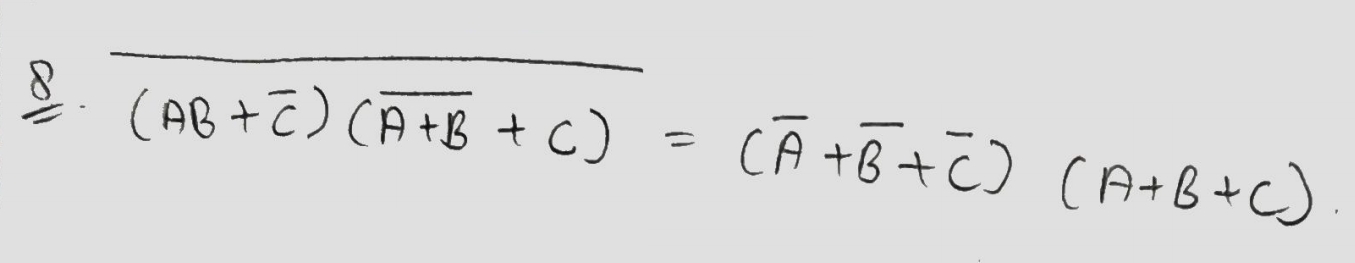 8. \overline{(AB + \overline{C}) (\overline{A+B} + C)} = (\overline{A} + \overline{B} + \overline{C}) (A+B+C).